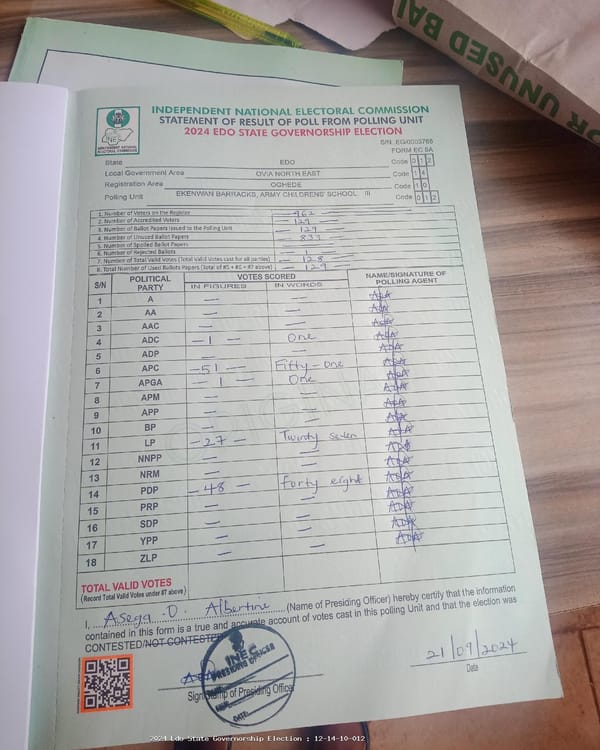 OR UNUSED BAL
INDEPENDENT NATIONAL ELECTORAL COMMISSION
STATEMENT OF RESULT OF POLL FROM POLLING UNIT
2024 EDO STATE GOVERNORSHIP ELECTION
S/N: EG/0003766
FORM EC 8A
INEC
INDEPENDENT NATIONAL ELECTORAL COMMISSION
State EDO Code 0 1 2
Local Government Area OVIA NORTH EAST Code 1 4
Registration Area OGHEDE Code 1 0
Polling Unit EKENWAN BARRACKS, ARMY CHILDRENS' SCHOOL III Code 0 1 2
1. Number of Voters on the Register — 962 —
2. Number of Accredited Voters — 129 —
3. Number of Ballot Papers Issued to the Polling Unit — 129 —
4. Number of Unused Ballot Papers — 833 —
5. Number of Spoiled Ballot Papers —
6. Number of Rejected Ballots —
7. Number of Total Valid Votes (Total Valid Votes cast for all parties) — 128 —
8. Total Number of Used Ballots Papers (Total of #5 + #6 + #7 above) — 129 —
S/N POLITICAL PARTY VOTES SCORED NAME/SIGNATURE OF POLLING AGENT
IN FIGURES IN WORDS
1 A — —
2 AA — —
3 AAC — —
4 ADC — 1 — One
5 ADP — —
6 APC — 51 — Fifty-One
7 APGA — 1 — One
8 APM — —
9 APP — —
10 BP — —
11 LP — 27 — Twenty seven
12 NNPP — —
13 NRM — —
14 PDP — 48 — forty eight
15 PRP — —
16 SDP — —
17 YPP — —
18 ZLP — —
TOTAL VALID VOTES
(Record Total Valid Votes under #7 above)
I, Asega D. Albertine (Name of Presiding Officer) hereby certify that the information
contained in this form is a true and accurate account of votes cast in this polling Unit and that the election was
CONTESTED/NOT CONTESTED
INEC
PRESIDING OFFICER
DATE:
Sign/Stamp of Presiding Officer
21/09/2024
Date
2024 Edo State Governorship Election : 12-14-10-012